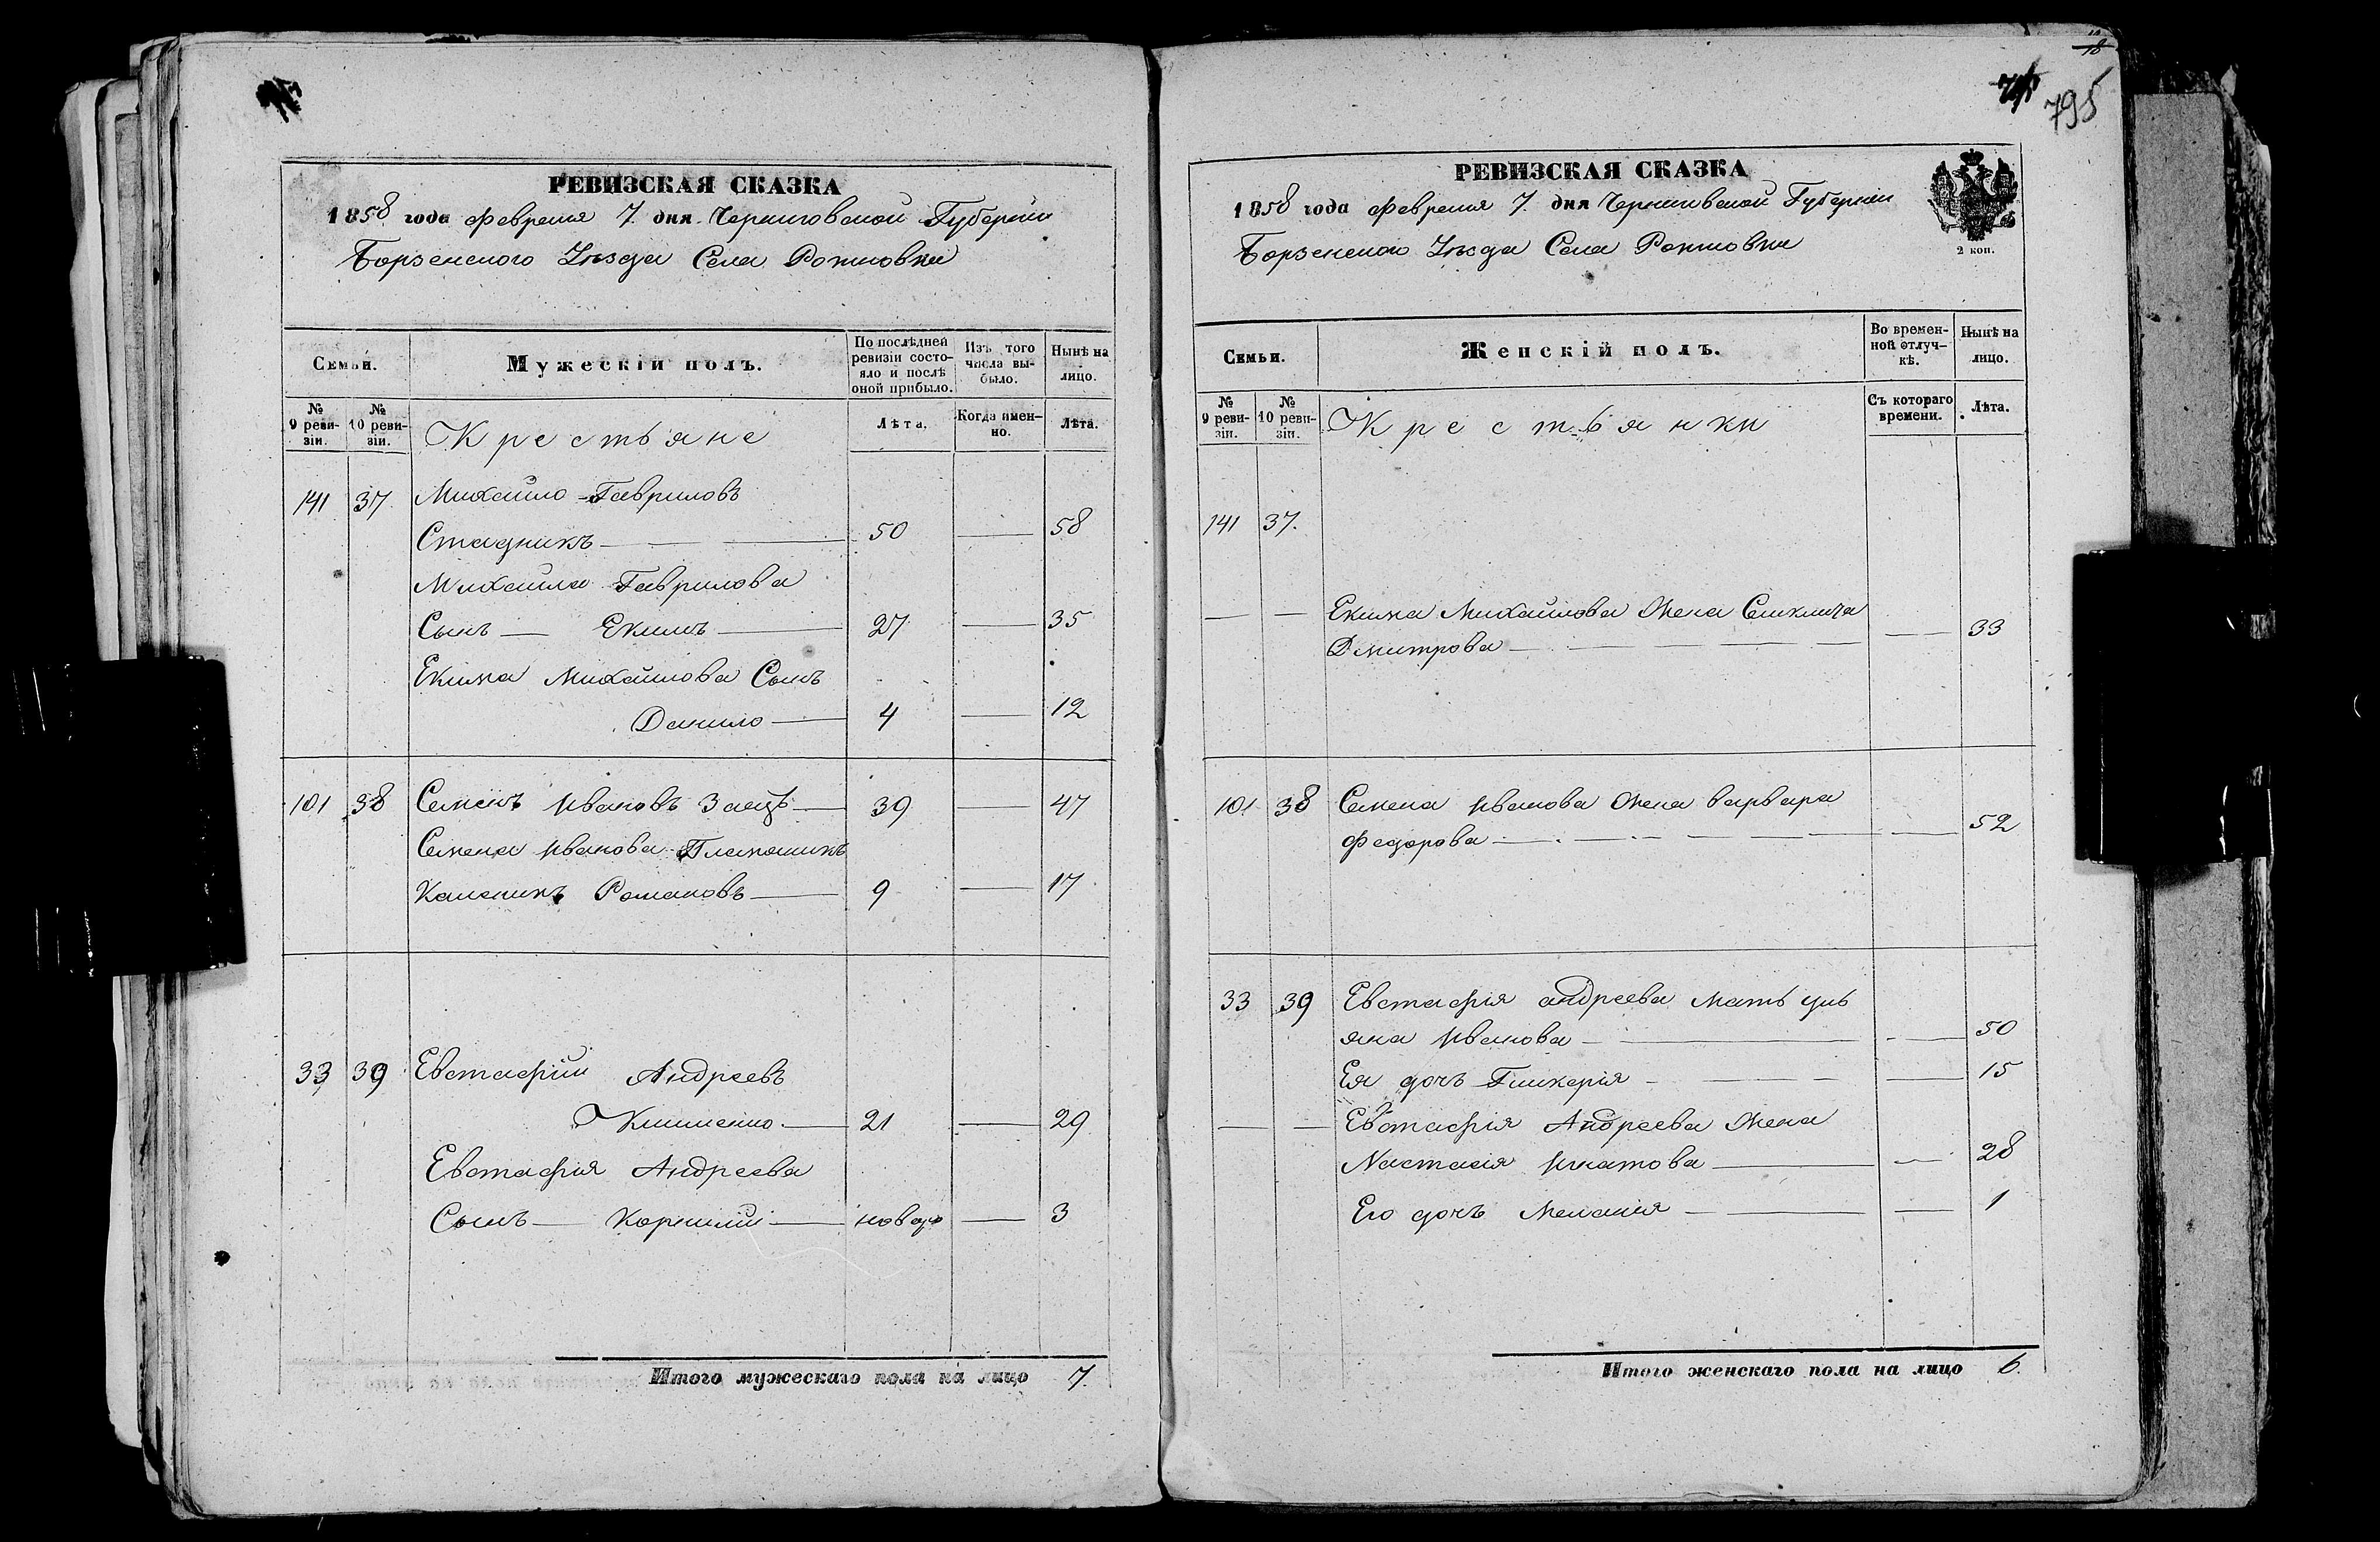 РЕВИЗСКАЯ СКАЗКА
1858 года Февраля 7. дня Черниговской Губерніи
Борзенского Уѣзда Села Рожновки
Семьи.
Мужескій полъ.
По послѣдней ревизіи состояло и послѣ оной прибыло.
Изъ того числа выбыло.
Нынѣ на лицо.
№ 9 ревизіи.
№ 10 ревизіи.
Крестьяне
Лѣта.
Когда именно.
Лѣта.
141 37 Михайло Гавриловъ
Стадникъ 50 58
Михайла Гаврилова
Сынъ Екимъ 27 35
Екима Михайлова Сынъ
Данило 4 12
101 38 Семенъ Ивановъ Заецъ 39 47
Семена Иванова Племянникъ
Каленикъ Романовъ 9 17
33 39 Евстафій Андреевъ
21 29
Евстафія Андреева
Сынъ Корнилій новор 3
Итого мужескаго пола на лицо 7.
18
795
РЕВИЗСКАЯ СКАЗКА
1858 года Февраля 7. дня Черниговской Губерніи
Борзенского Уѣзда Села Рожновки
2 коп.
Семьи.
Женскій полъ.
Во временной отлучкѣ.
Нынѣ на лицо.
№ 9 ревизіи.
№ 10 ревизіи.
Крестьянки
Съ котораго времени.
Лѣта.
141 37.
Екима Михайлова Жена
Дмитрова 33
101 38 Семена Иванова Жена Варвара
Федорова 52
33 39 Евстафія Андреева Мать Уль
яна Иванова 50
Ея дочь Гликерія 15
Евстафія Андреева Жена
Настасія Игнатова 28
Его дочь Меланія 1
Итого женскаго пола на лицо 6.